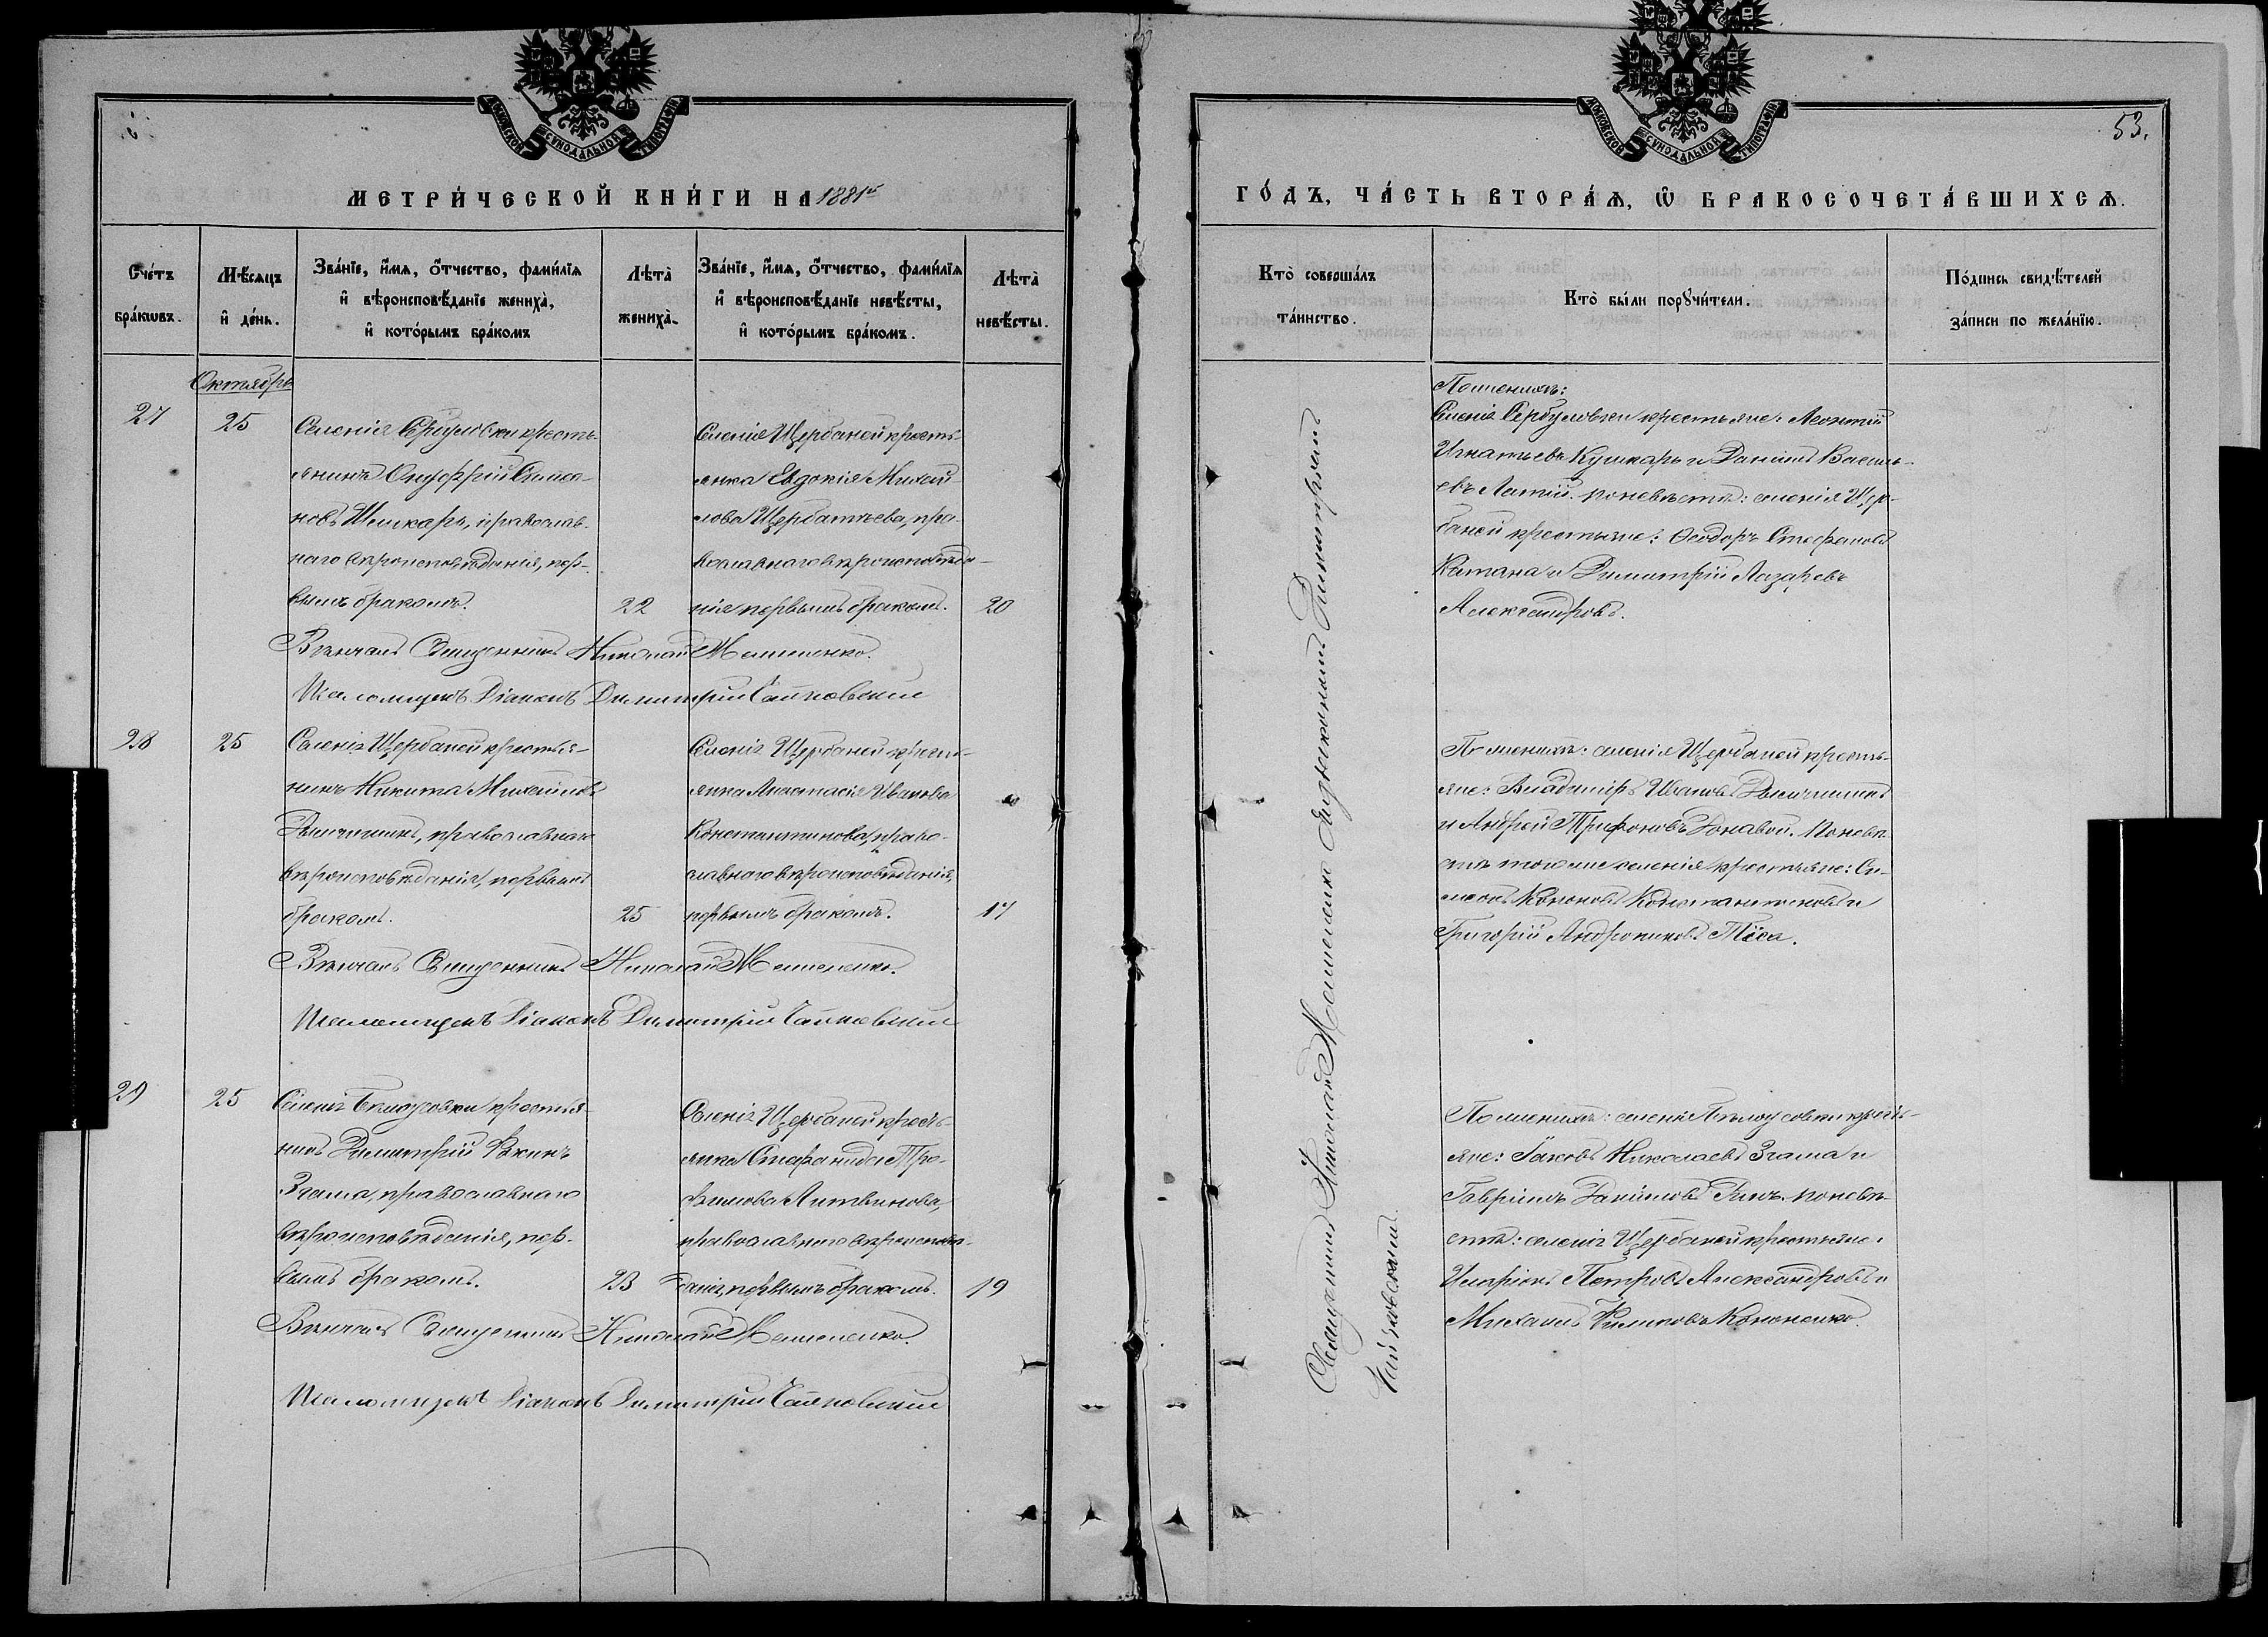 МОСКОВСКОЙ СѴНОДАЛЬНОЙ ТИПОГРАФІИ
МЕТРИ́ЧЕСКОЙ КНИ́ГИ НА 1881й
Сче́тъ бра́ковъ.
Мѣ́сяцъ и҆ де́нь.
Зва́нїе, и҆́мѧ, ѻ҆́тчество, фами́лїѧ
и҆ вѣроисповѣ́данїе жениха̀,
и҆ кото́рымъ бра́комъ
Лѣта̀ жениха̀.
Зва́нїе, и҆́мѧ, ѻ҆́тчество, фами́лїѧ
и҆ вѣроисповѣ́данїе невѣ́сты,
и҆ кото́рымъ бра́комъ.
Лѣта̀ невѣ́сты.
Октябрь
27
25
Селенія Сербуловки кресть-
янинъ Онуфрій Симео-
новъ Шинкарь, православ-
наго вѣроисповѣданія, пер-
вымъ бракомъ.
22
Селенія Щербаней кресть-
янка Евдокія Михай-
лова Щербатьева, пра-
вославнаго вѣроисповѣда-
нія первымъ бракомъ.
20
Вѣнчалъ Священникъ Николай
Псаломщикъ Діаконъ Димитрій Чайковскій
28
25
Селенія Щербаней крестья-
нинъ Никита Михайловъ
православнаго
вѣроисповѣданія, первымъ
бракомъ.
25
Селенія Щербаней кресть-
янка Анастасія Иванова
Константинова, право-
славнаго вѣроисповѣданія,
первымъ бракомъ.
17
Вѣнчалъ Священникъ Николай
Псаломщикъ Діаконъ Димитрій Чайковскій
29
25
Селенія Бѣлоусовки крестья-
нинъ Димитрій
Згама, православнаго
вѣроисповѣданія, пер-
вымъ бракомъ.
23
Селенія Щербаней кресть-
янка Стефанида Тро-
фимова Литвинова,
православнаго вѣроисповѣ-
данія, первымъ бракомъ.
19
Вѣнчалъ Священникъ Николай
Псаломщикъ Діаконъ Димитрій Чайковскій
МОСКОВСКОЙ СѴНОДАЛЬНОЙ ТИПОГРАФІИ
53.
ГО́ДЪ, ЧА́СТЬ ВТОРА́Ѧ, Ѽ БРАКОСОЧЕТА́ВШИХСѦ.
Кто̀ соверша́лъ
та́инство.
Кто̀ бы́ли порꙋчи́тели.
По́дпись свидѣ́телей
за́писи по жела́нїю.
Священникъ Николай
Димитріемъ
Чайковскимъ.
По женихѣ:
Селенія Сербуловки крестьяне: Леонтій
Игнатьевъ Кушнарь и Даніилъ Василь-
евъ по невѣстѣ: селенія Щер-
баней крестьяне: Ѳеодоръ Стефановъ
Катана и Димитрій Лазаревъ
Александровъ.
По женихѣ: селенія Щербаней кресть-
яне: Владиміръ Ивановъ
и Андрей Трифоновъ по невѣ-
стѣ того же селенія крестьяне: Си-
меонъ Кононовъ Константиновъ и
Григорій Андрониковъ
По женихѣ: селенія Бѣлоусовки кресть-
яне: Іаковъ Николаевъ Згама и
Гавріилъ по невѣ-
стѣ: селенія Щербаней крестьяне:
Иларіонъ Петровъ Александровъ и
Михаилъ Филиповъ Кононенко.